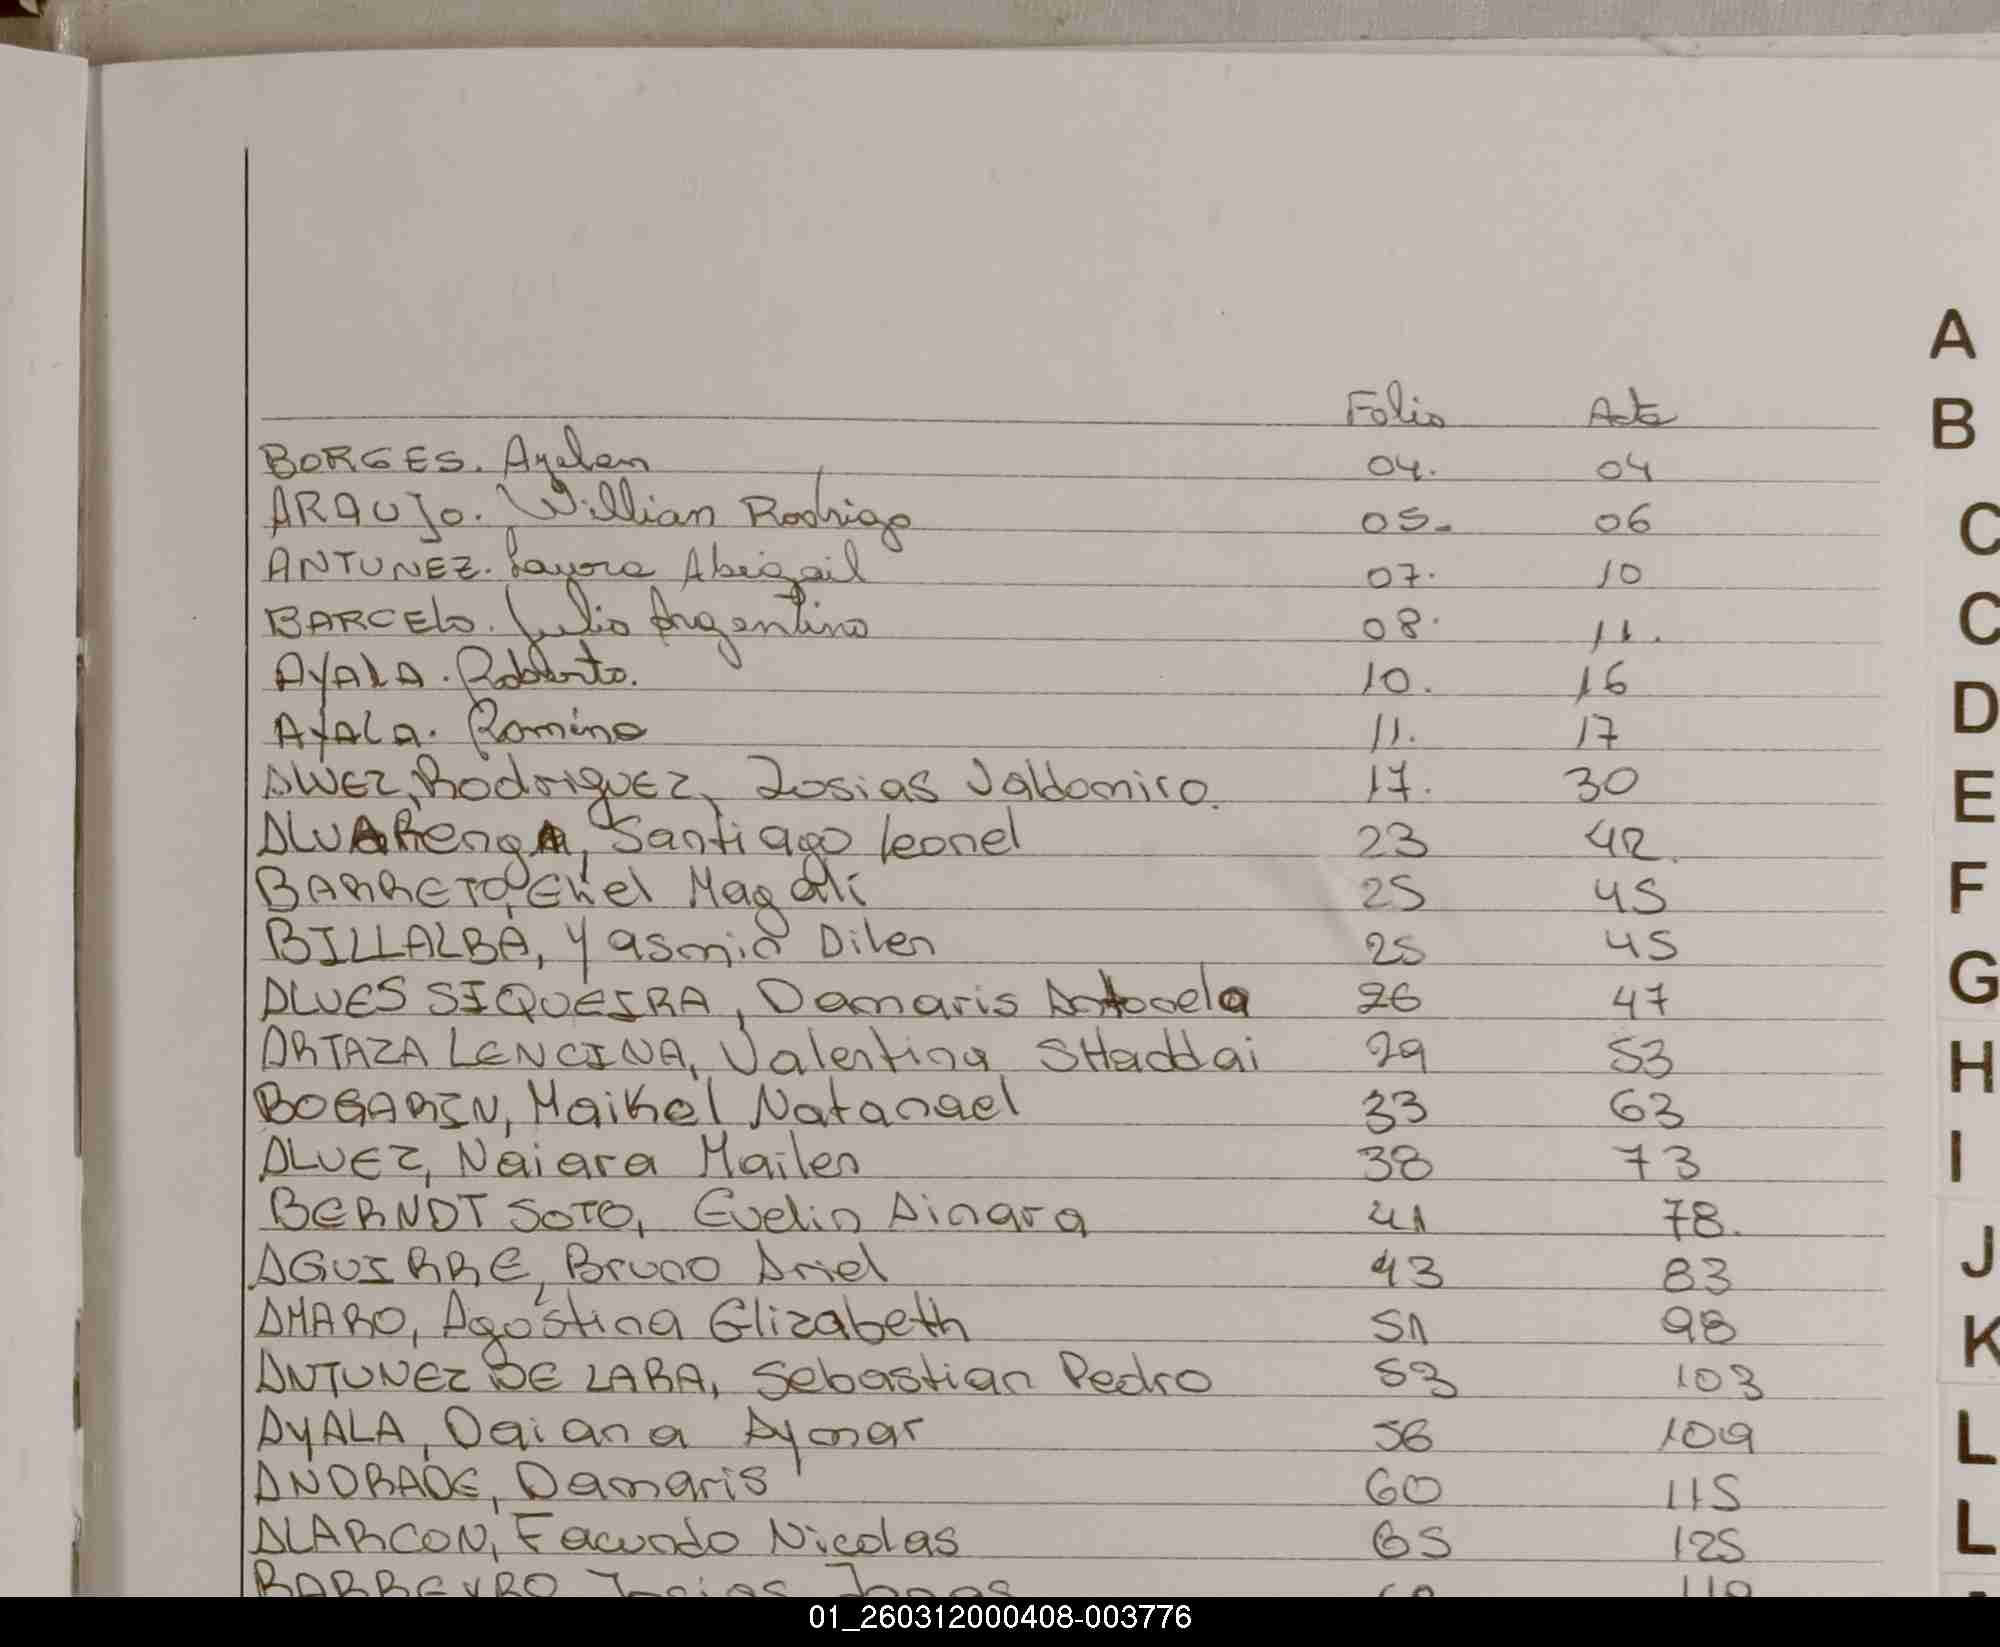 Folio Acta
BORGES. Ayelen 04. 04
ARAUJO. Willian Rodrigo 05. 06
ANTUNEZ. Layora Abigail 07. 10
BARCELO. Julio Argentino 08. 11.
AYALA. Roberto. 10. 16
AYALA. Romina 11. 17
ALVEZ, Rodriguez, Josias Valdomiro. 17. 30
ALVARenga, Santiago leonel 23 42.
BARRETO, Magali 25 45
BILLALBA, Yasmin Dilen 25 45
ALVES SIQUEIRA, Damaris Antonela 26 47
ARTAZA LENCINA, Valentina SHaddai 29 53
BOGARIN, Maikel Natanael 33 63
ALVEZ, Naiara Mailen 38 73
BERNDT SOTO, Evelin Ainara 41 78.
AGUIRRE, Bruno Ariel 43 83
AMARO, Agostina Elizabeth 51 98
ANTUNEZ DE LARA, Sebastian Pedro 53 103
AYALA, Daiana Aymar 56 109
ANDRADE, Damaris 60 115
ALARCON, Facundo Nicolas 65 125
A
B
C
C
D
E
F
G
H
I
J
K
L
L
01_260312000408-003776